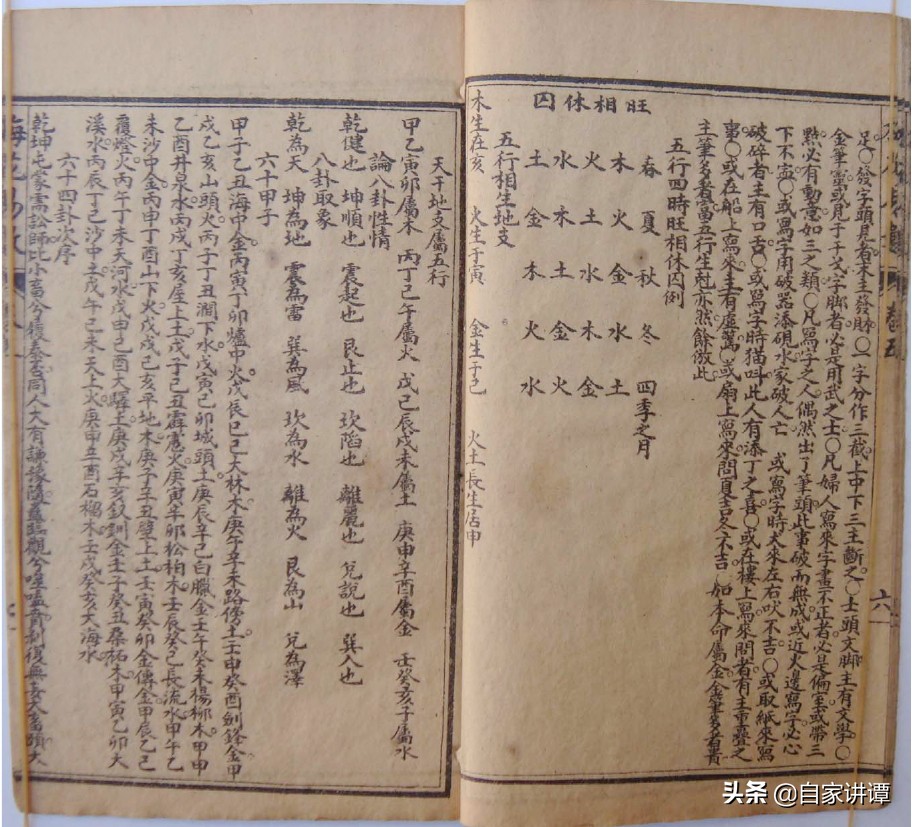 卷五
六
足〇發字頭見者末主發財〇一字分作三截上中下三主斷之〇士頭文脚主有文學〇
金筆靈或見于干戈字脚者必是用武之士〇凡婦人寫來字畫不正者必是偏室或帶三
點必有動意如三之類〇凡寫字之人偶然出了筆頭此事破而無成或近火邊寫字必心
下不寧〇或寫字用破器添硯水家破人亡 或寫字時犬來左右吠不吉〇或取紙來寫
破碎者主有口舌〇或寫字時猫呌此人有添丁之喜〇或在樓上寫來問者有主重疊之
事〇或在船上寫來主有虛驚〇或扇上寫來問夏吉冬不吉 如本命屬金金筆多者貴
主筆多者富五行生尅亦然餘倣此
五行四時旺相休囚例
旺相休囚
春 夏 秋 冬 四季之月
木 火 金 水 土
火 土 水 木 金
水 木 土 金 火
土 金 木 火 水
五行相生地支
木生在亥 火生于寅 金生于巳 火土長生居申
天干地支屬五行
甲乙寅卯屬木 丙丁巳午屬火 戊己辰戌未屬土 庚申辛酉屬金 壬癸亥子屬水
論八卦性情
乾健也 坤順也 震起也 艮止也 坎陷也 離麗也 兌說也 巽入也
八卦取象
乾為天 坤為地 震為雷 巽為風 坎為水 離為火 艮為山 兌為澤
六十甲子
甲子乙丑海中金丙寅丁卯爐中火戊辰己巳大林木庚午辛未路傍土壬申癸酉劍鋒金甲
戌乙亥山頭火丙子丁丑澗下水戊寅己卯城頭土庚辰辛巳白臘金壬午癸未楊柳木甲申
乙酉井泉水丙戌丁亥屋上土戊子己丑霹靂火庚寅辛卯松柏木壬辰癸巳長流水甲午乙
未沙中金丙申丁酉山下火戊戌己亥平地木庚子辛丑壁上土壬寅癸卯金傳金甲辰乙巳
覆燈火丙午丁未天河水戊申己酉大驛土庚戌辛亥釵釧金壬子癸丑桑柘木甲寅乙卯大
溪水丙辰丁巳沙中土戊午己未天上火庚申辛酉石榴木壬戌癸亥大海水
六十四卦次序
乾坤屯蒙需訟師比小畜兮履泰否同人大有謙豫隨蠱臨觀兮噬嗑賁剝復無妄大畜頤大
头条 @自家讲谭